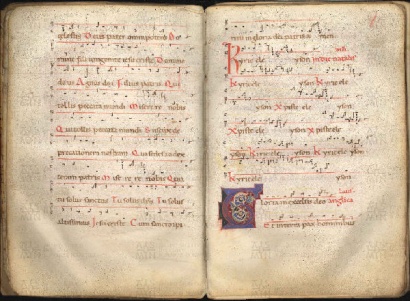 celestis Deus pater omnipotens Do
mine fili unigenite iesu christe Domine
deus Agnus dei Filius patris Qui
tollis peccata mundi Miserere nobis
Qui tollis peccata mundi Suscipe de
precationem nostram Qui sedes ad dex
teram patris Mi se re re nobis Quo
tu solus sanctus Tu solus dns Tu solus
altissimus Cum sancto spi
ritu in gloria dei patris a men
Kyrie ele yson
Kyrie ele yson Kyrie ele
yson Xpiste ele yson
Xpiste ele yson Xpiste ele
yson Kyrie ele yson Kyrie ele
Kyrie ele yson
Gloria in excelsis deo
Et in terra pax hominibus